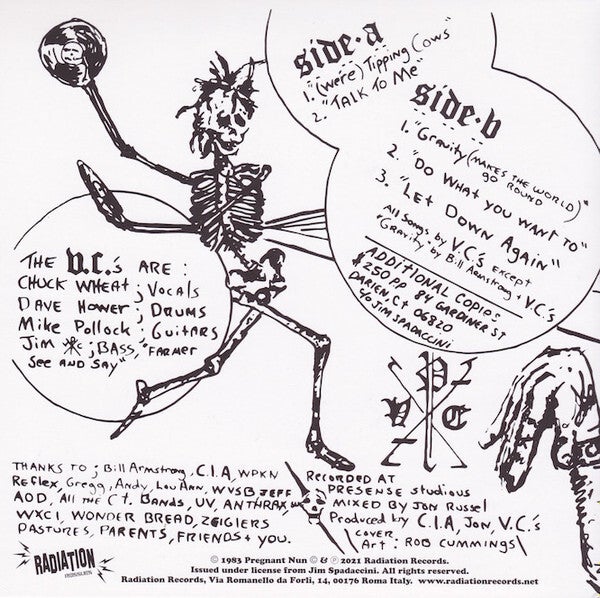 side·a
1. "(We're) Tipping Cows"
2. "Talk To Me"
side·b
1. "Gravity (MAKES THE WORLD)
go ROUND"
2. "Do What you WANT to"
3. "Let Down Again"
All Songs by V.C.'s except
"Gravity" by Bill Armstrong + V.C.'s
ADDITIONAL COPIES
$2.50 PP 84 GARDINER ST
DARIEN CT 06820
c/o JIM SPADACCINI
THE V.C.'s ARE:
CHUCK WHEAT; Vocals
DAVE HOWER; DRUMS
Mike Pollock; GUITARS
Jim; BASS, "FARMER
See AND SAY"
V P C
THANKS TO; Bill Armstrong, C.I.A, WPKN
Reflex, Gregg, Andy, Lou Ann, WVSB JEFF
AOD, All the Ct. Bands, UV, ANTHRAX,
WXCI, WONDER BREAD, ZEIGLERS
PASTURES, PARENTS, FRIENDS + YOU.
RECORDED AT
PRESENSE studious
MIXED By Jon Russel
Produced by C.I.A, Jon, V.C.'s
COVER
Art: ROB CUMMINGS
RADIATION
© 1983 Pregnant Nun © & ℗ 2021 Radiation Records.
Issued under license from Jim Spadaccini. All rights reserved.
Radiation Records, Via Romanello da Forlì, 14, 00176 Roma Italy. www.radiationrecords.net